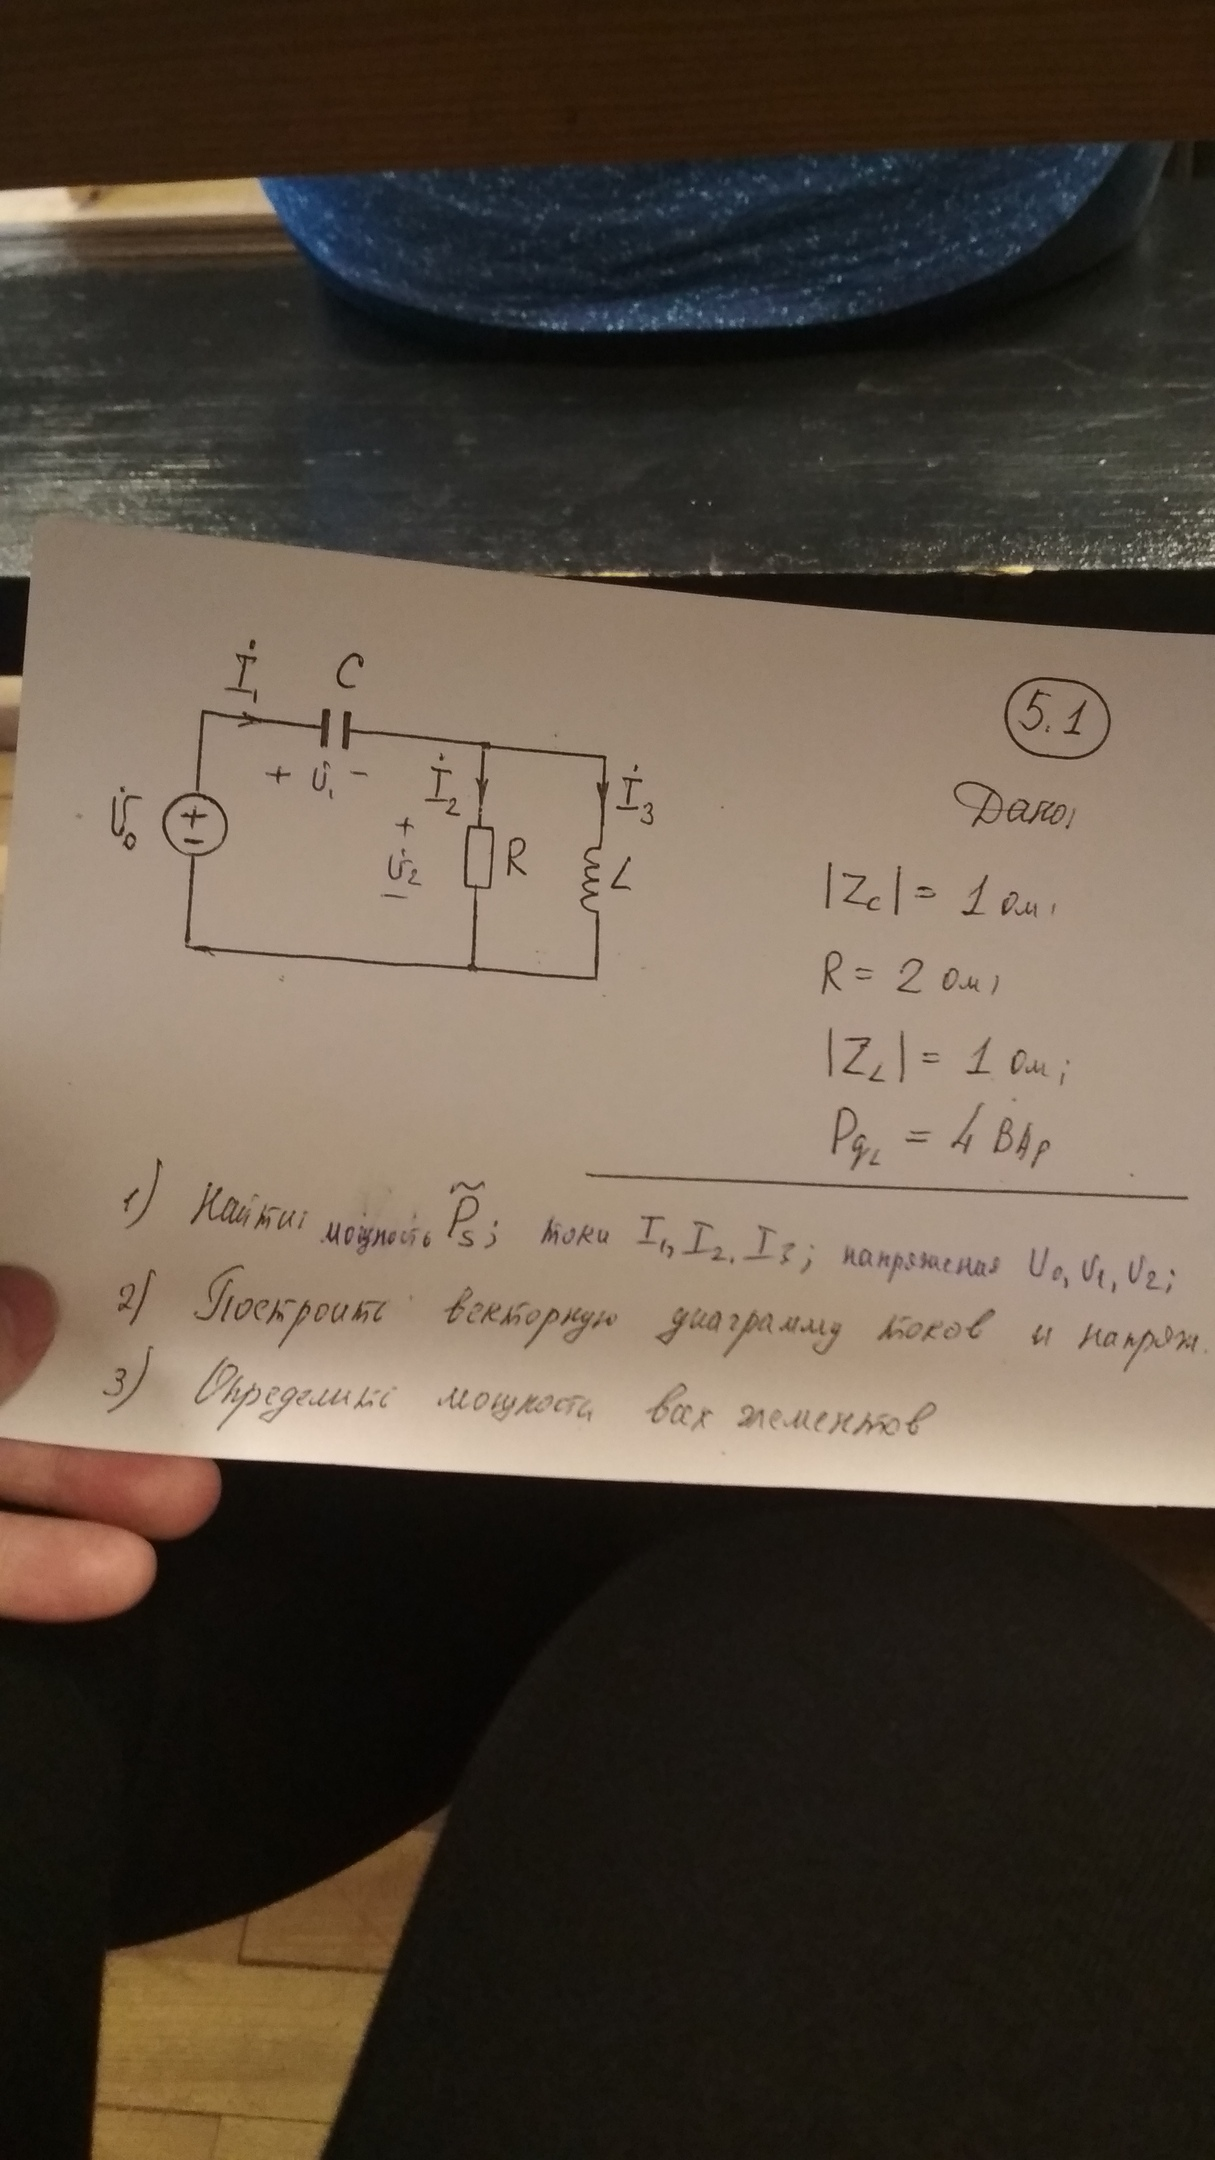 İ₁ C
5.1
+ U̇₁ -
İ₂
İ₃
Дано:
U̇₀
+
-
+
U̇₂
-
R
L
|Zc| = 1 ом;
R = 2 ом;
|Z_L| = 1 ом;
Pq_L = 4 ВАр
1) Найти: мощность P̃s; токи I₁, I₂, I₃; напряжения U₀, U₁, U₂;
2) Построить векторную диаграмму токов и напряж.
3) Определить мощности всех элементов